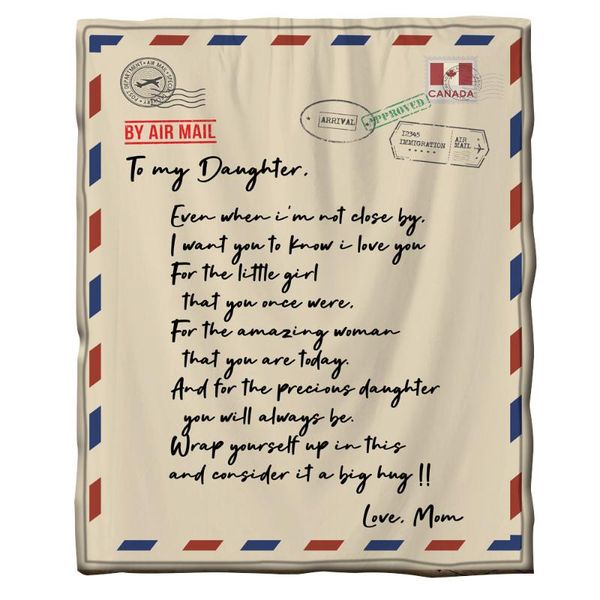 POST DEPARTMENT • AIR MAIL • SPECIAL
CANADA
ARRIVAL
APPROVED
12345
IMMIGRATION
AIR
MAIL
BY AIR MAIL
To my Daughter,
Even when i'm not close by,
I want you to know i love you
For the little girl
that you once were,
For the amazing woman
that you are today.
And for the precious daughter
you will always be.
Wrap yourself up in this
and consider it a big hug !!
Love, Mom